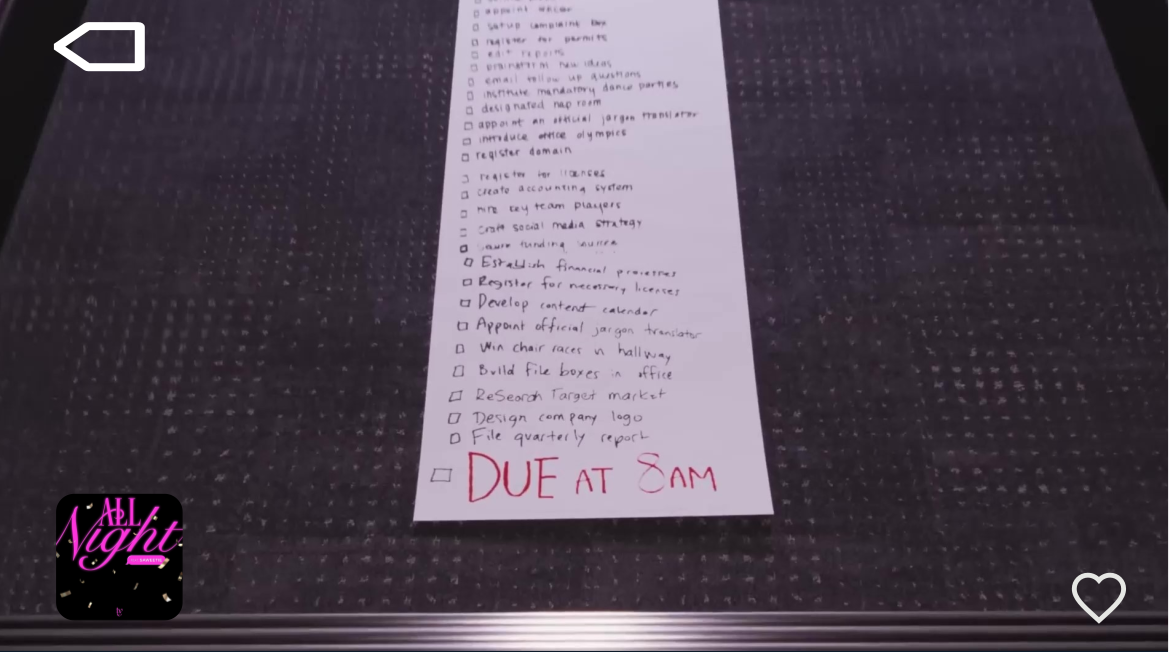 setup complaint box
register for permits
edit reports
brainstorm new ideas
email follow up questions
institute mandatory dance parties
designated nap room
appoint an official jargon translator
introduce office olympics
register domain
register for licenses
create accounting system
hire key team players
craft social media strategy
funding
Establish financial processes
Register for necessary licenses
Develop content calendar
Appoint official jargon translator
Win chair races in hallway
Build file boxes in office
Research Target market
Design company logo
File quarterly report
DUE AT 8AM
ALL
Night